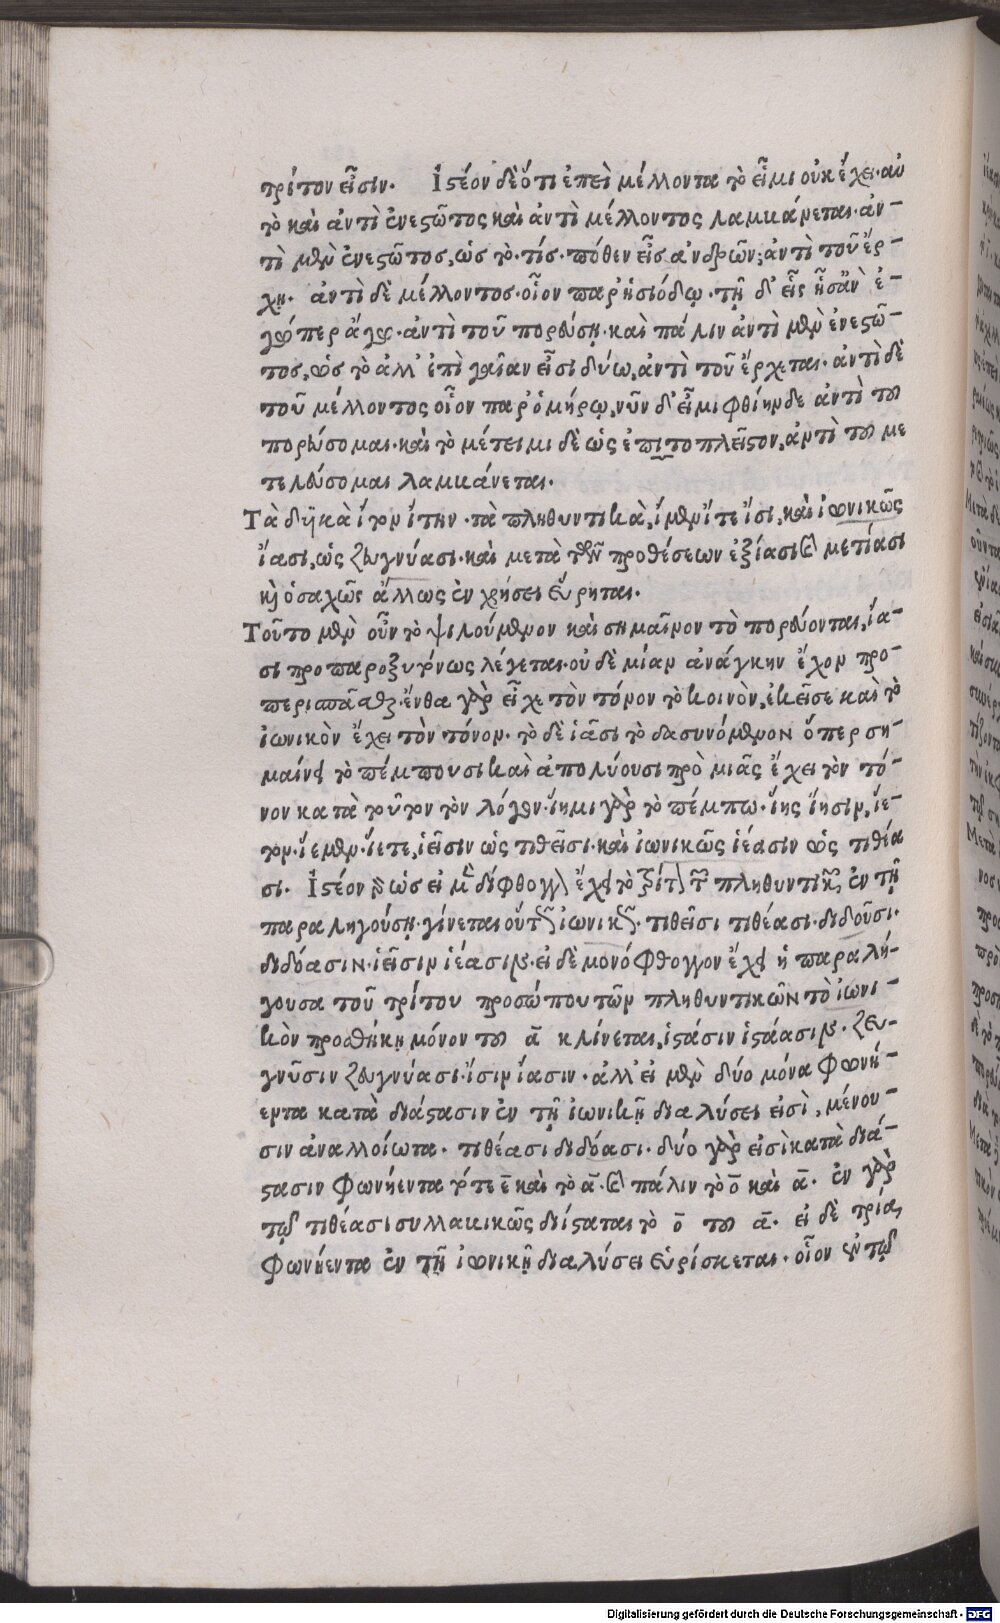 τρίτον εἶσιν. Ἰστέον δὲ ὅτι ἐπεὶ μέλλοντα τὸ εἶμι οὐκ ἔχει· αὐ
τὸ καὶ ἀντὶ ἐνεστῶτος καὶ ἀντὶ μέλλοντος λαμβάνεται· ἀν-
τὶ μὲν ἐνεστῶτος, ὡς τὸ· τίς· πόθεν εἶς ἀνδρῶν; ἀντὶ τοῦ ἔρ-
χῃ. ἀντὶ δὲ μέλλοντος· οἷον παρ' ἡσιόδῳ· τῇ δ' εἶς ᾗ σ' ἂν ἐ-
γώ περ ἄγω· ἀντὶ τοῦ πορεύσῃ· καὶ πάλιν ἀντὶ μὲν ἐνεστῶ-
τος, ὡς τὸ ἀλλ' ἐπὶ γαῖαν εἶσι δύω, ἀντὶ τοῦ ἔρχεται· ἀντὶ δὲ
τοῦ μέλλοντος οἷον παρ' ὁμήρῳ, νῦν δ' εἶμι φθίην δε ἀντὶ του
πορεύσομαι· καὶ τὸ μέτειμι δὲ ὡς ἐπιτοπλεῖστον, ἀντὶ του με
τελεύσομαι λαμβάνεται.
Τὰ δϋϊκὰ ἴτον ἴτην· τὰ πληθυντικὰ, ἴμεν ἴτε ἴσι, καὶ ἰωνικῶς
ἴασι, ὡς ζευγνύασι· καὶ μετὰ τῶν προθέσεων ἐξίασι καὶ μετίασι
καὶ ὁσαχῶς ἄλλως ἐν χρήσει εὕρηται.
Τοῦτο μὲν οὖν τὸ ψιλούμενον καὶ σημαῖνον τὸ πορεύονται, ἴα-
σι προπαροξυτόνως λέγεται· οὐδὲ μίαν ἀνάγκην ἔχον προ-
περισπᾶσθαι· ἔνθα γὰρ εἶχε τὸν τόνον τὸ κοινὸν, ἐκεῖσε καὶ τὸ
ἰωνικὸν ἔχει τὸν τόνον. τὸ δὲ ἱᾶσι τὸ δασυνόμενον ὅπερ ση-
μαίνει τὸ πέμπουσι καὶ ἀπολύουσι πρὸ μιᾶς ἔχει τὸν τό-
νον κατὰ τοῦτον τὸν λόγον· ἵημι γὰρ τὸ πέμπω· ἵης ἵησιν, ἵε-
τον· ἵεμεν· ἵετε, ἱεῖσιν ὡς τιθεῖσι· καὶ ἰωνικῶς ἱέασιν ὡς τιθέα
σι. Ἰστέον δὲ ὡς εἰ μὲν δίφθογγον ἔχει τὸ τρίτον τῶν πληθυντικῶν ἐν τῇ
παραληγούσῃ· γίνεται οὕτως ἰωνικῶς· τιθεῖσι τιθέασι· διδοῦσι.
διδόασιν· ἱεῖσιν ἱέασιν. εἰ δὲ μονόφθογγον ἔχει ἡ παραλή-
γουσα τοῦ τρίτου προσώπου τῶν πληθυντικῶν τὸ ἰωνι-
κὸν προσθήκῃ μόνον του ᾱ κλίνεται, ἱστάσιν ἱστάασιν. ζευ-
γνῦσιν ζευγνύασι. ἴσιν ἴασιν. ἀλλ' εἰ μὲν δύο μόνα φωνή-
εντα κατὰ διάστασιν ἐν τῇ ἰωνικῇ διαλύσει εἰσὶ, μένου-
σιν ἀναλλοίωτα. τιθέασι διδόασι. δύο γὰρ εἰσὶ κατὰ διά-
στασιν φωνήεντα τό τε ε̄ καὶ τὸ ᾱ. καὶ πάλιν τὸ ο̄ καὶ ᾱ. ἐν γὰρ
τῷ τιθέασι συλλαβικῶς διίσταται τὸ ο̄ του ᾱ. εἰ δὲ τρία,
φωνήεντα ἐν τῇ ἰωνικῇ διαλύσει εὑρίσκεται. οἷον ἐν τῷ
Digitalisierung gefördert durch die Deutsche Forschungsgemeinschaft - DFG